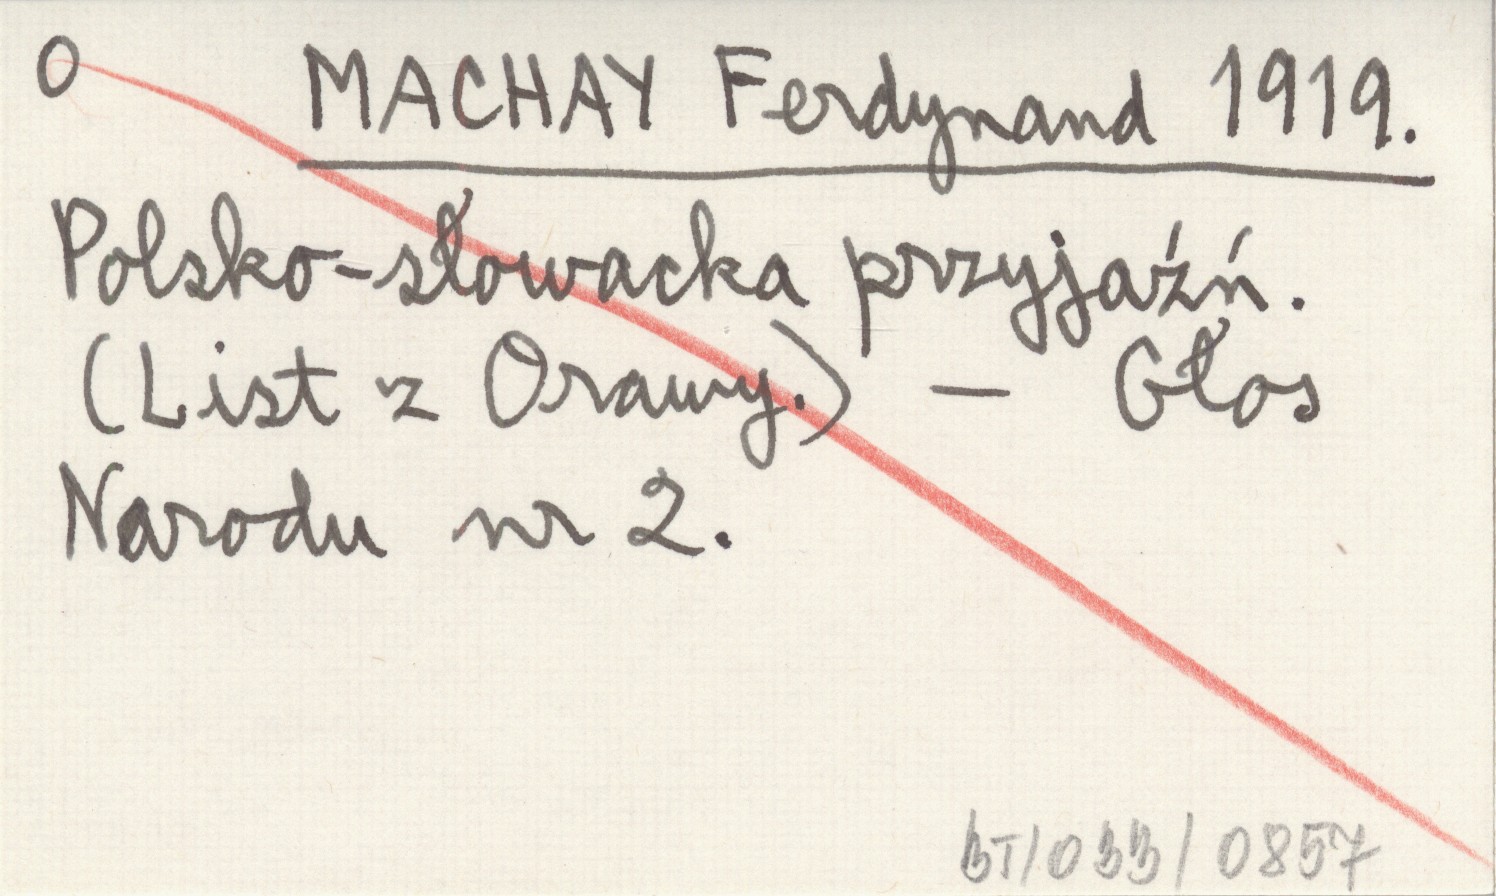 O MACHAY Ferdynand 1919.
Polsko-słowacka przyjaźń.
(List z Orawy.) — Głos
Narodu nr 2.
BT/033/0857